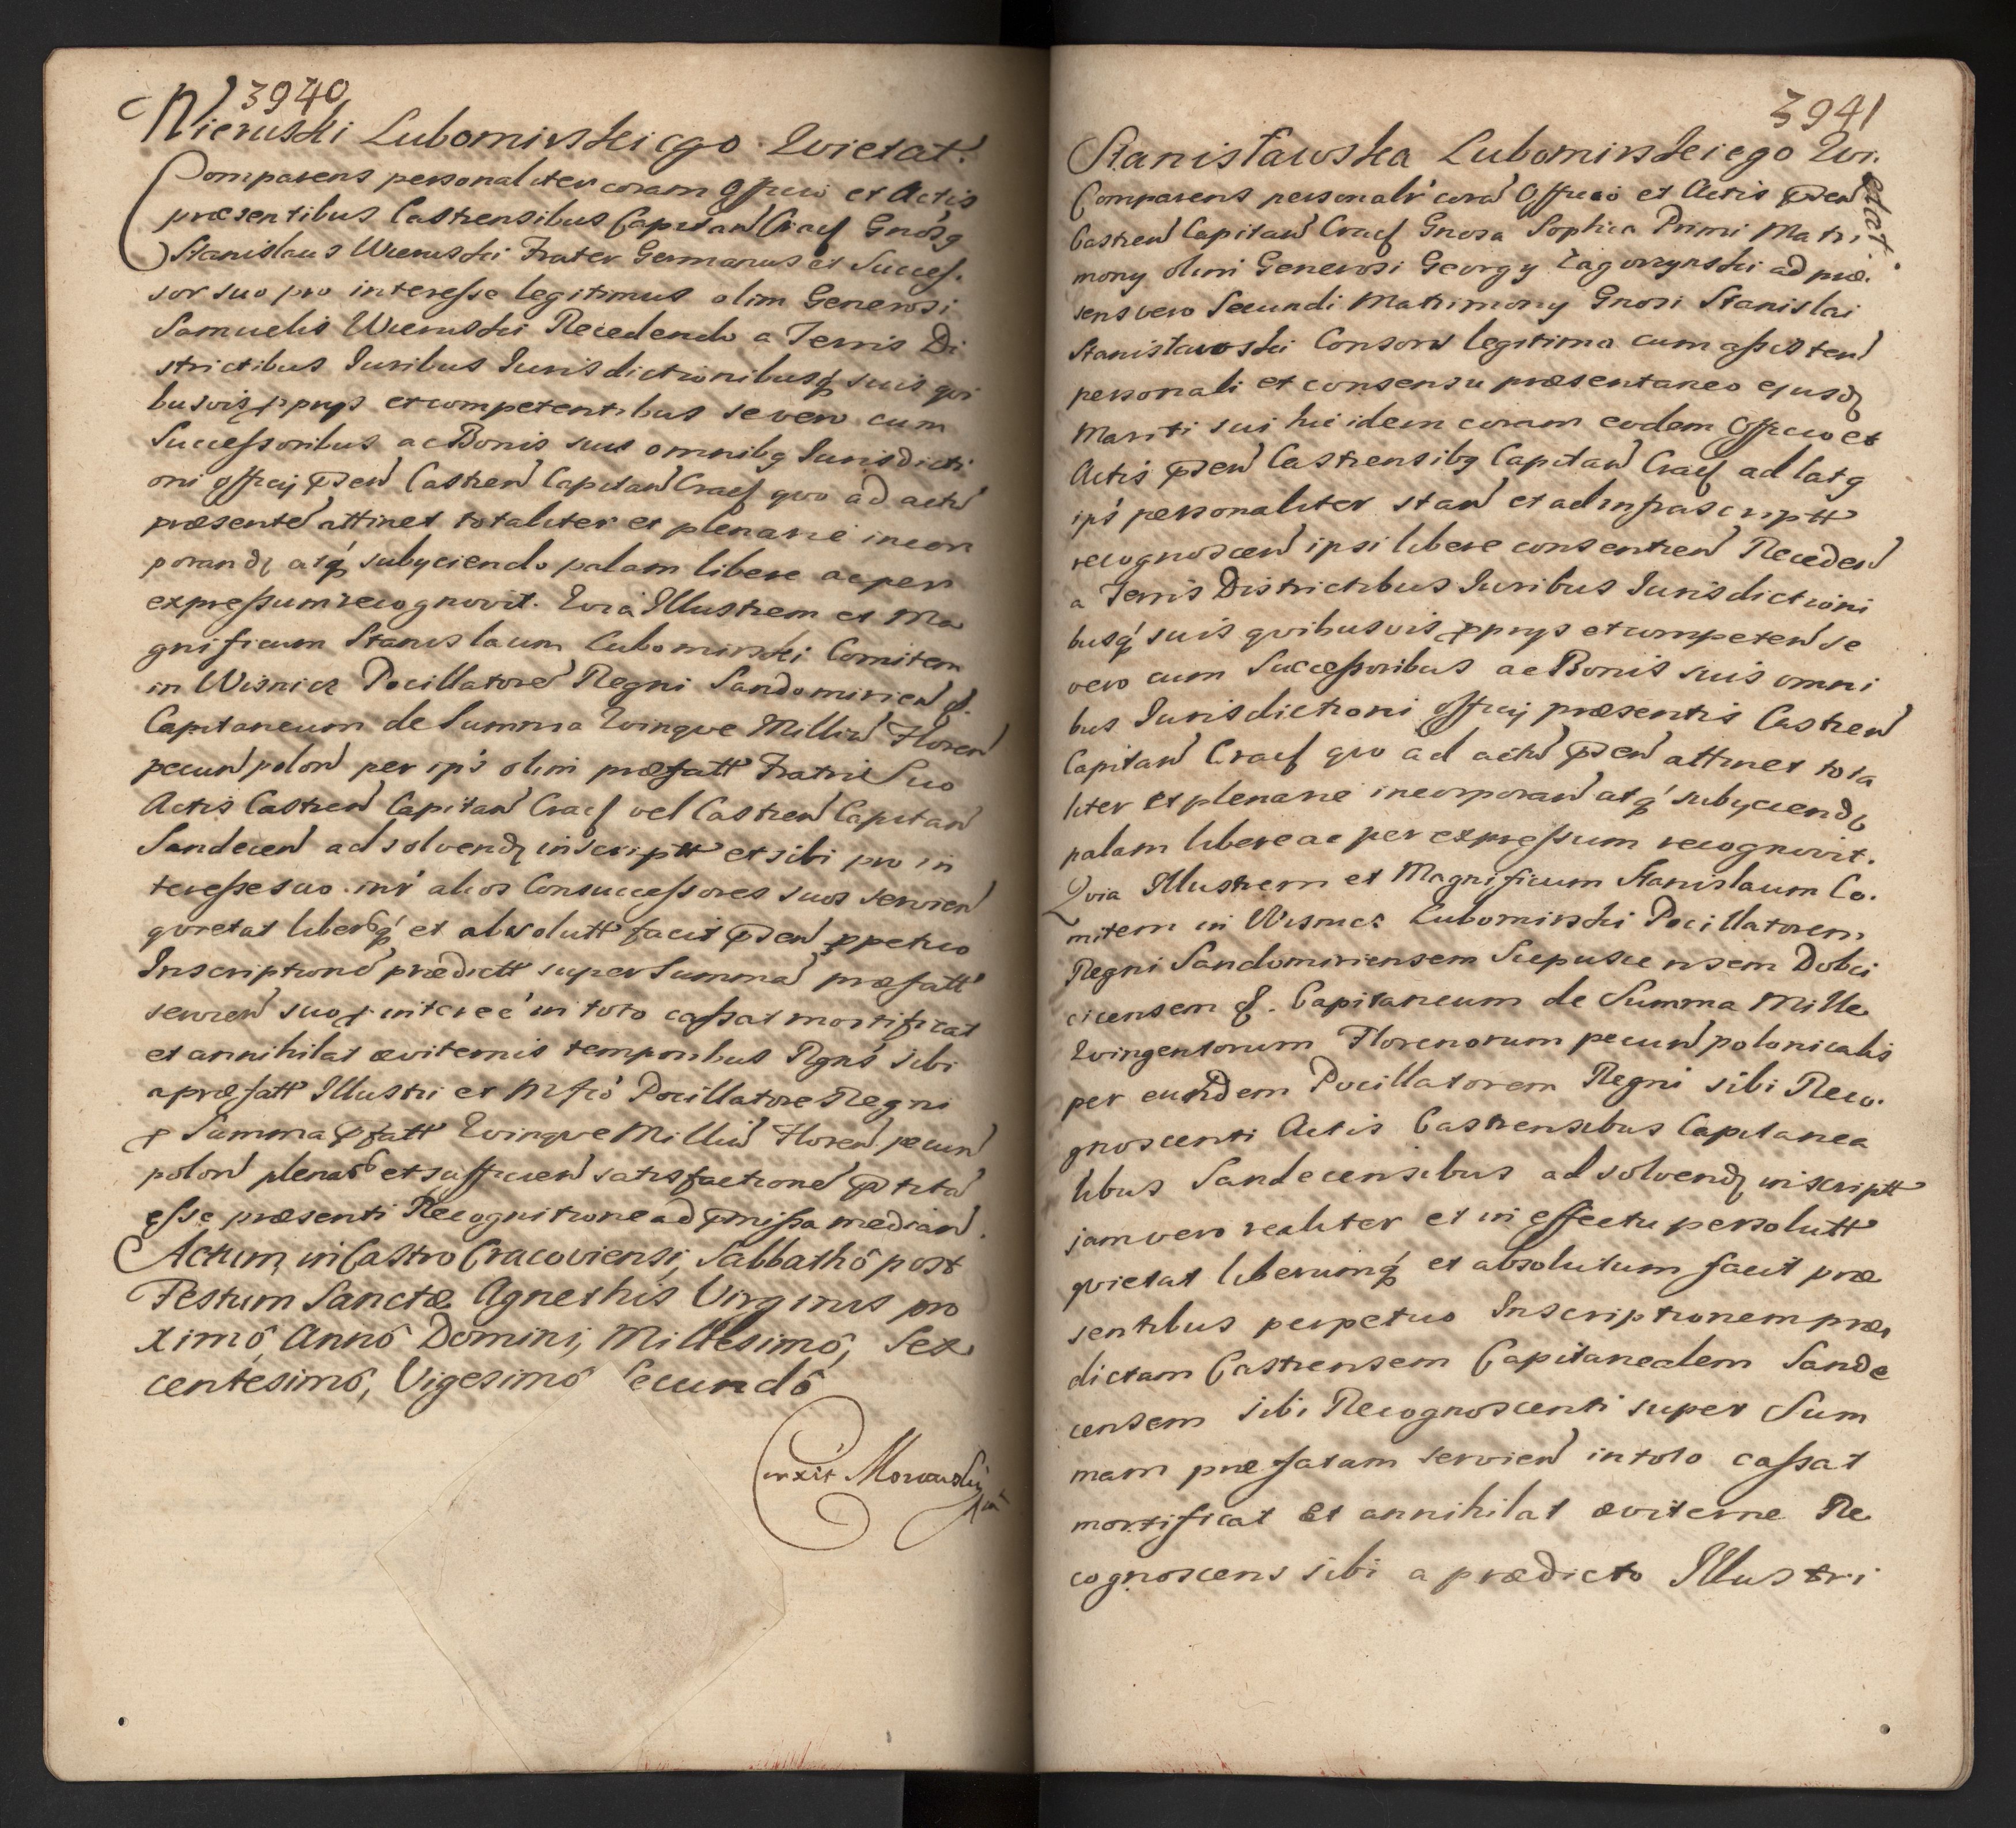 3940
Wieruski Lubomirskiego Qvietat.
Comparens personaliter coram Officio et Actis
præsentibus Castrensibus Capitan Cracſ Gnosg
Stanislaus Wieruski Frater Germanus et Succeſ.
sor suo pro intereſse legitimus olim Generosi
Samuelis Wieruski Recedendo a Terris Di
strictibus Iuribus Iurisdictionibusq suis qvi
busvis ppriis et competentibus se vero cum
Succeſsoribus ac Bonis suis omnibg Iurisdicti
oni officij pden Castren Capitan Cracſ qvo ad actu
præsente attinet totaliter et plenarie incor
porand atq subyciendo palam libere ac per
expreſsum recognovit. Qvia Illustrem et Ma
gnificum Stanislaum Lubomirski Comitem
in Wisnicz Pocillatore Regni Sandomirien &.
Capitaneum de Summa Qvinqve Milliu Floren
pecun polon per ips olim præfatt Fratri Suo
Actis Castren Capitan Cracſ vel Castren Capitan
Sandecen ad solvend inscriptt et sibi pro in
tereſse suo inr alios Consucceſsores suos servien
qvietat liberq et absolutt facit pden ppetuo
Inscriptione prædictt super Summa præfatt
servien suo interee in toto caſsat mortificat
et annihilat æviternis temporibus Rgns sibi
a præfatt Illustri et Mfco Pocillatore Regni
Summa pfatt Qvinqve Milliu Floren pecun
polon plena et sufficien satisfactione ptita
eſse præsenti Recognitione ad pmiſsa median.
Actum in Castro Cracoviensi, Sabbathô post
Festum Sanctæ Agnethis Virginis pro
ximô, Annô Domini, Millesimô, Sex
centesimô, Vigesimô Secundô
Correxit Morawski
3941
Stanisławska Lubomirskiego Qvi.
etat.
Comparens personalr cora Officio et Actis pden
Castren Capitan Cracſ Gnosa Sophia Primi Matri
mony olim Generosi Georgy Zagorzynski ad præ.
sens vero Secundi Matrimony Gnosi Stanislai
Stanisławski Consors legitima cum aſsisten
personali et consensu præsentaneo ejusd
Mariti sui hic idem coram eodem Officio et
Actis pden Castrensibg Capitan Cracſ ad latg
ips personaliter stan et ad infrascriptt
recognoscen ipsi libere consentien Receden
a Terris Districtibus Iuribus Iurisdictioni
busq suis qvibusvis ppriis et competen se
vero cum Succeſsoribus ac Bonis suis omni
bus Iurisdictioni officij præsentis Castren
Capitan Cracſ qvo ad actu pden attinet tota
liter et plenarie incorporan atq subyciend
palam libere ac per expreſsum recognovit.
Qvia Illustrem et Magnificum Stanislaum Co.
mitem in Wisnicz Lubomirski Pocillatorem
Regni Sandomiriensem Scepusiensem Dobci
cicensem &. Capitaneum de Summa Mille
Qvingentorum Florenorum pecun polonicalis
per eundem Pocillatorem Regni sibi Reco.
gnoscenti Actis Castrensibus Capitanea
libus Sandecensibus ad solvend inscriptt
jam vero realiter et in effectu persolutt
qvietat liberumq et absolutum facit præ
sentibus perpetuo Inscriptionem præ
dictam Castrensem Capitanealem Sande
censem sibi Recognoscenti super Sum
mam præfatam servien in toto caſsat
mortificat et annihilat æviterne Re
cognoscens sibi a prædicto Illustri